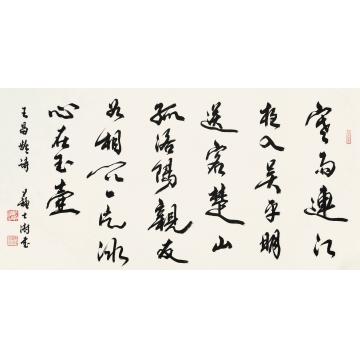 寒雨連江
夜入吳平明
送客楚山
孤洛陽親友
如相問一片冰
心在玉壺
王昌齡詩 蘇士澍書